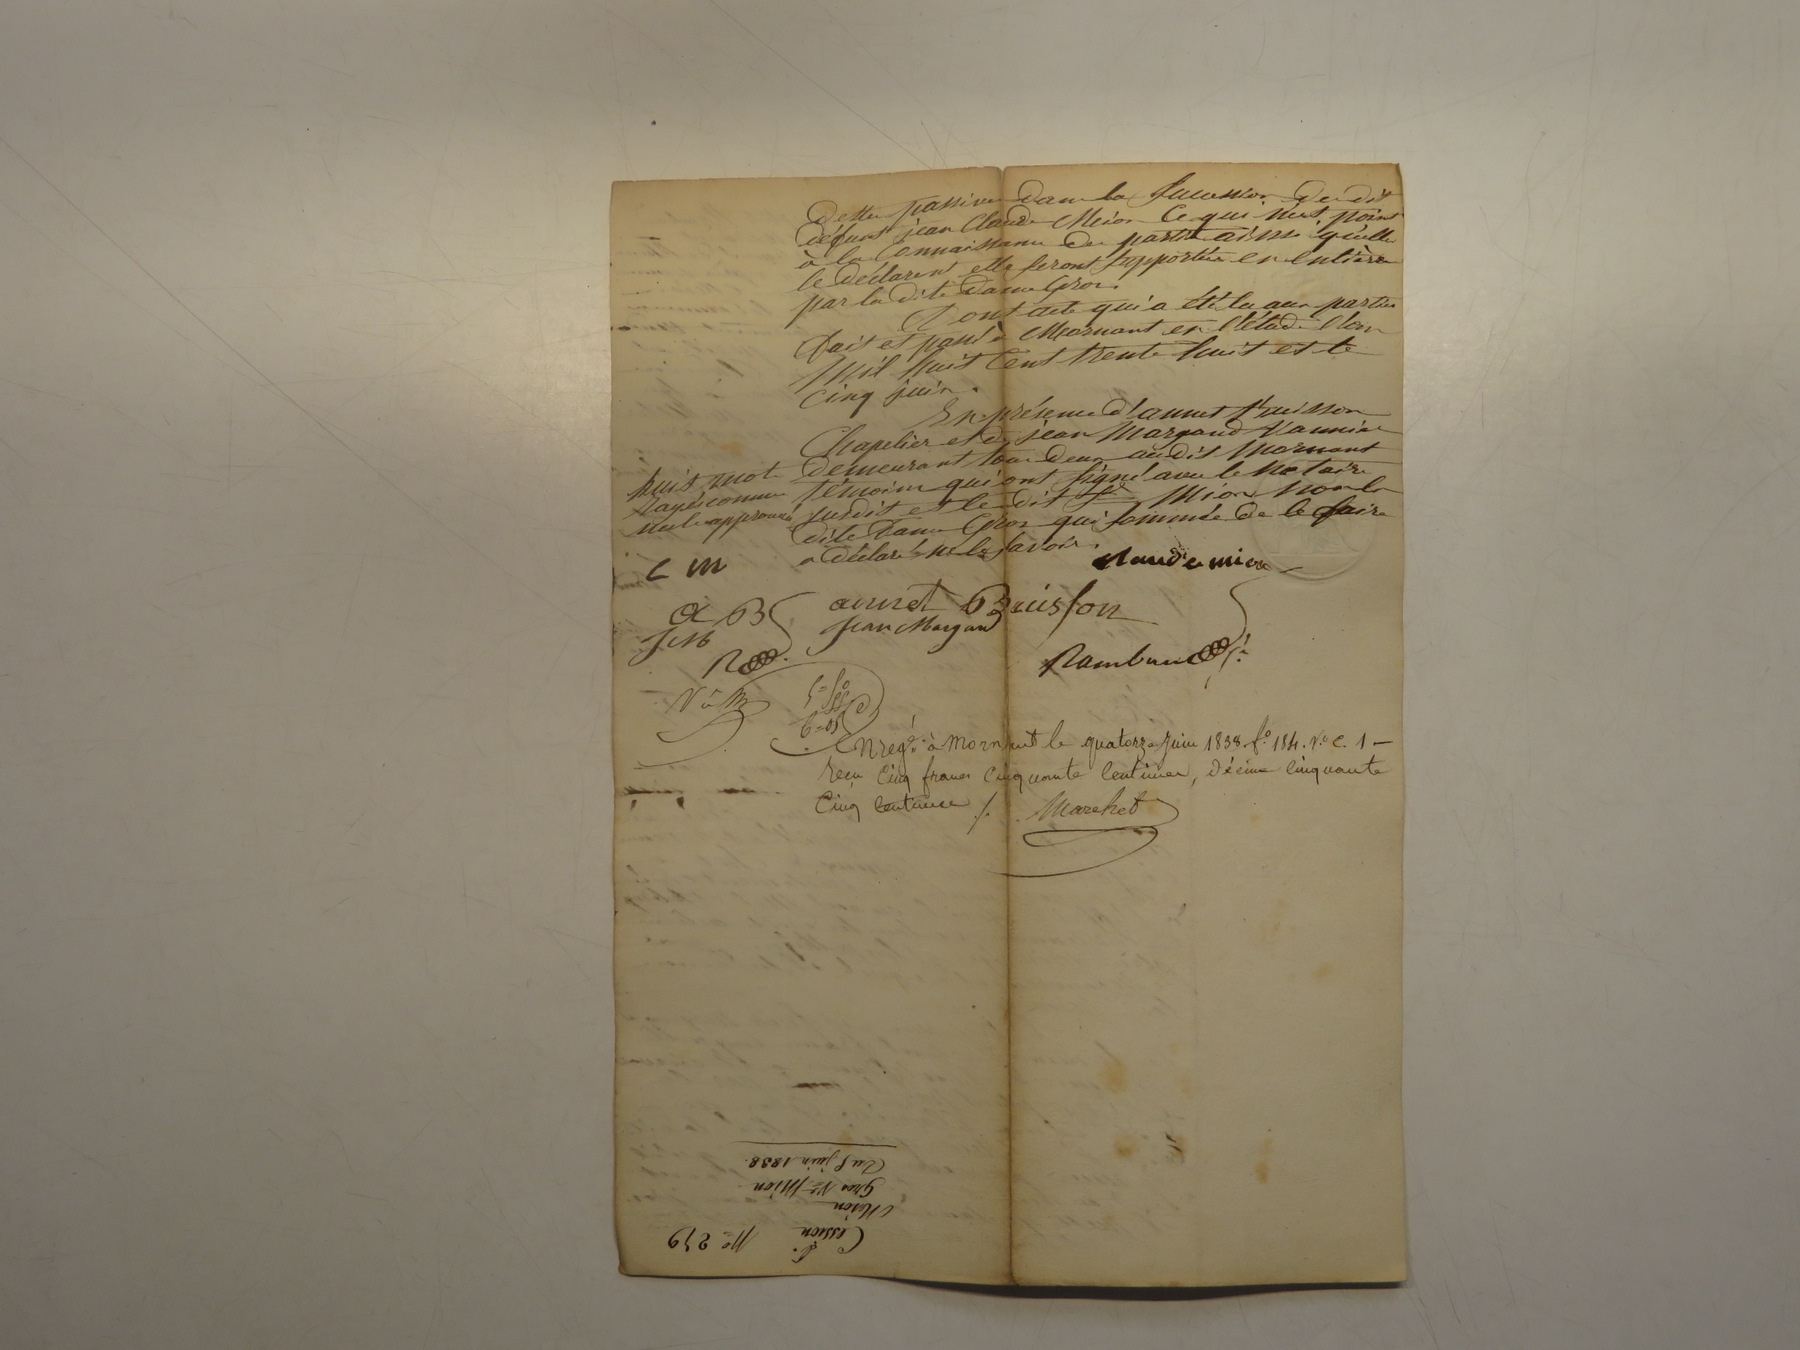 Dettes passives dans la succession du dit
défunt jean Claude Mion Ce qui n'est point
à la Connaissance des parties ainsi qu'elles
le déclarent elles seront supportées en entières
par la dite Dame Gros.
Dont acte qui a été lu aux parties
fait et passé à Mornant en l'étude l'an
Mil huit Cent trente huit et le
Cinq juin.
En présence d'annet Buisson
Chapelier et de jean Margand Vannier
Demeurant tous deux audit Mornant
témoins qui ont signé avec le Notaire
susdit et le dit Sr Mion Non la
dite Dame Gros qui sommée de le faire
a déclaré ne le savoir.
huit mots
rayés comme
nuls approuvés
C M
Claude mion
A B
annet Buisson
J M
jean Margand
R
V à M
Enregé à Mornant le quatorze Juin 1838. fo 184. Vo C. 1 –
reçu Cinq francs Cinquante Centimes, décime Cinquante
Cinq centimes ./.
Marchet
No 279
Cession
Mion
à
Gros Ve Mion
Du 5 juin 1838.